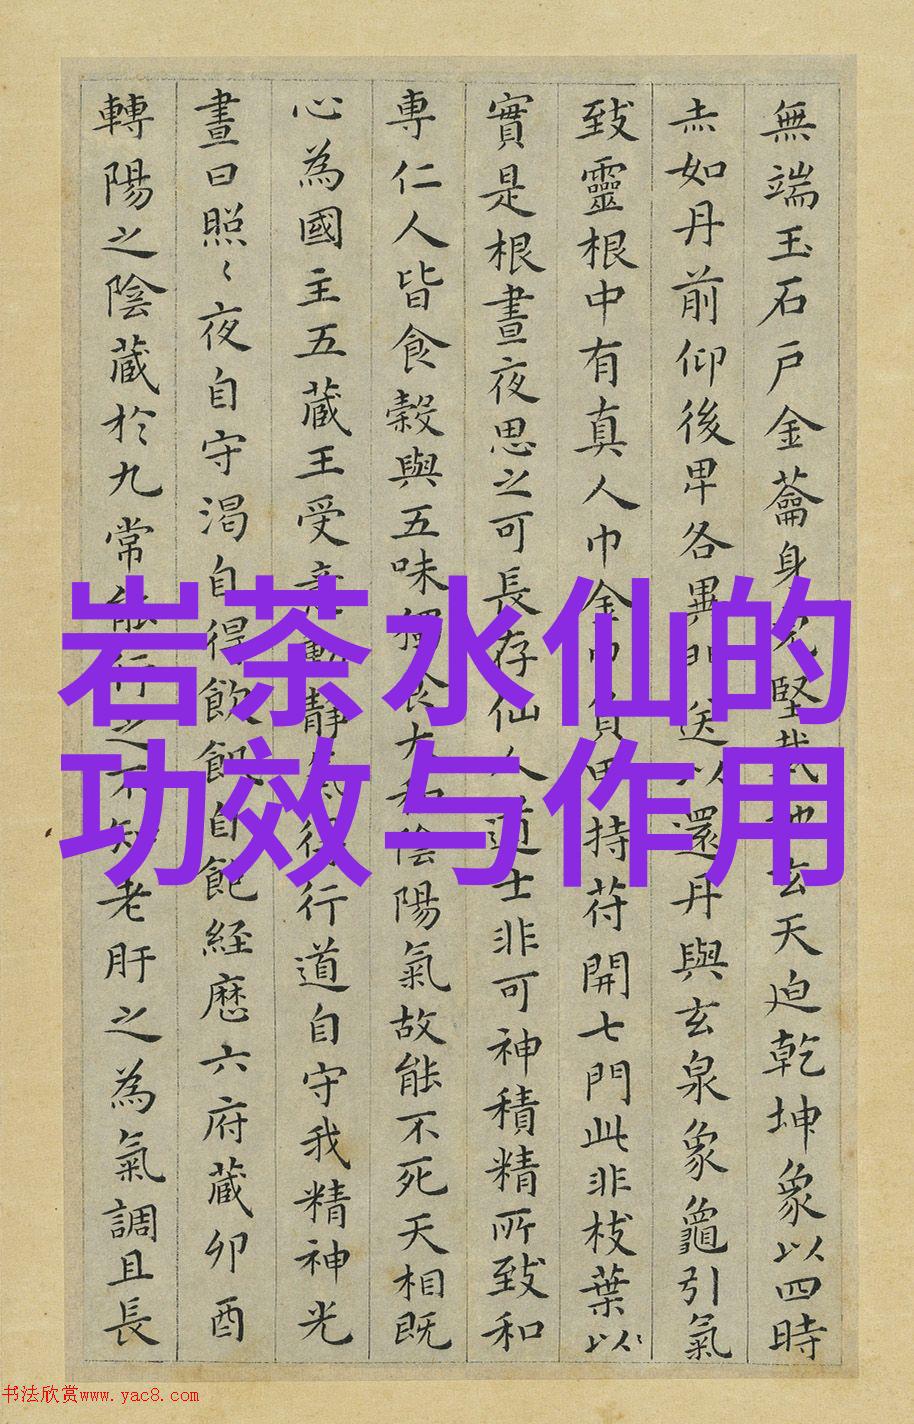 無端玉石戶金蘥身堅哉玄天迫乾坤象以四時
赤如丹前仰後卑各異送以還丹與玄泉象龜引氣
致靈根中有真人巾金巾負甲持苻開七門此非枝葉以
實是根晝夜思之可長存仙人道士非可神積精所致和
專仁人皆食穀與五味獨食大和陰陽氣故能不死天相既
心為國主五蔵王受意動靜氣得行道自守我精神光
晝曰照〻夜自守渴自得飲飢自飽経歴六府蔵夘酉
轉陽之陰蔵於九常能行之不知老肝之為氣調且長
岩茶水仙的
功效与作用
书法欣赏www.yac8.com